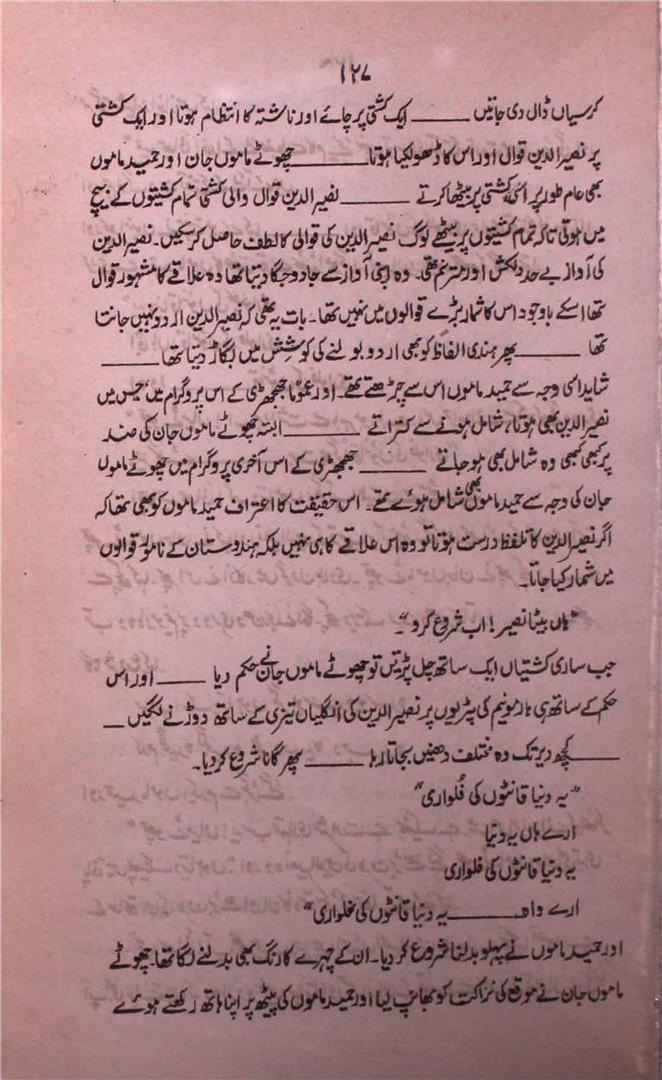 ۱۲۷
کرسیاں ڈال دی جاتیں ــــــ ایک کشتی پر چائے اور ناشتہ کا انتظام ہوتا اور ایک کشتی
پر نصیرالدین قوال اور اس کا ڈھولکیا ہوتا ــــــ چھوٹے ماموں جان اور حمید ماموں
بھی عام طور پر اسی کشتی پر بیٹھا کرتے ــــــ نصیرالدین قوال والی کشتی تمام کشتیوں کے بیچ
میں ہوتی تاکہ تمام کشتیوں پر بیٹھے لوگ نصیرالدین کی قوالی کا لطف حاصل کر سکیں۔ نصیرالدین
کی آواز بے حد دلکش اور مترنم تھی۔ وہ اپنی آواز سے جادو جگا دیتا تھا وہ علاقے کا مشہور قوال
تھا اسکے باوجود اس کا شمار بڑے قوالوں میں نہیں تھا۔ بات یہ تھی کہ نصیرالدین اردو نہیں جانتا
تھا ــــــ پھر ہندی الفاظ کو بھی اردو بولنے کی کوشش میں بگاڑ دیتا تھا ــــــ
شاید اسی وجہ سے حمید ماموں اس سے چڑھتے تھے۔ اور عموماً جھجھڑی کے اس پروگرام میں، جس میں
نصیرالدین بھی ہوتا، شامل ہونے سے کتراتے ــــــ البتہ چھوٹے ماموں جان کی ضد
پر کبھی کبھی وہ شامل بھی ہو جاتے ــــــ جھجھڑی کے اس آخری پروگرام میں چھوٹے ماموں
جان کی وجہ سے حمید ماموں بھی شامل ہوئے تھے۔ اس حقیقت کا اعتراف حمید ماموں کو بھی تھا کہ
اگر نصیرالدین کا تلفظ درست ہوتا تو وہ اس علاقے کا ہی نہیں بلکہ ہندوستان کے نامور قوالوں
میں شمار کیا جاتا۔
"ہاں بیٹا نصیر! اب شروع کرو"۔
جب ساری کشتیاں ایک ساتھ چل پڑیں تو چھوٹے ماموں جان نے حکم دیا ــــــ اور اس
حکم کے ساتھ ہی ہارمونیم کی پٹریوں پر نصیرالدین کی انگلیاں تیزی کے ساتھ دوڑنے لگیں ــ
ــــــ کچھ دیر تک وہ مختلف دھنیں بجاتا رہا ــــــ پھر گانا شروع کر دیا۔
"یہ دنیا قانٹوں کی فلواری"
ارے ہاں یہ دنیا
یہ دنیا قانٹوں کی فلواری
ارے واہ ــــــ یہ دنیا قانٹوں کی فلواری"
اور حمید ماموں نے پہلو بدلنا شروع کر دیا۔ ان کے چہرے کا رنگ بھی بدلنے لگا تھا۔ چھوٹے
ماموں جان نے موقع کی نزاکت کو بھانپ لیا اور حمید ماموں کی پیٹھ پر اپنا ہاتھ رکھتے ہوئے